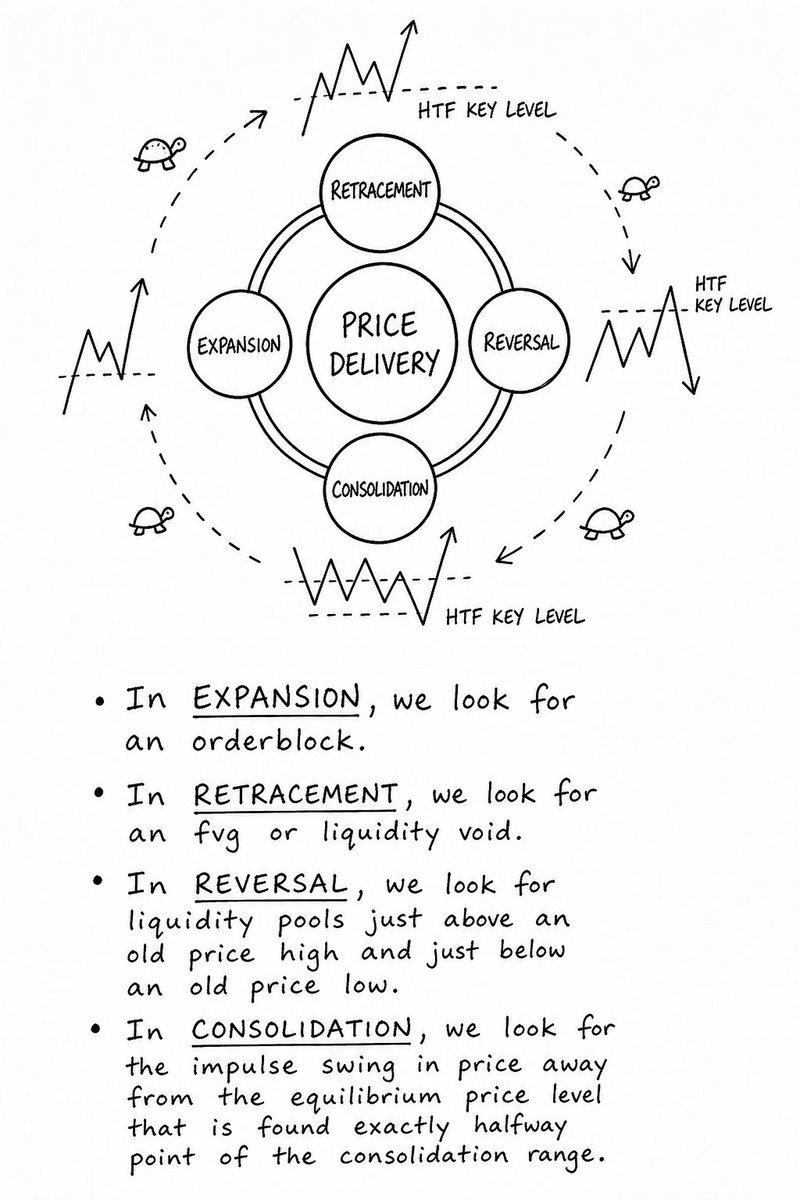 HTF KEY LEVEL
RETRACEMENT
HTF
KEY LEVEL
EXPANSION
PRICE
DELIVERY
REVERSAL
CONSOLIDATION
HTF KEY LEVEL
• In EXPANSION, we look for
an orderblock.
• In RETRACEMENT, we look for
an fvg or liquidity void.
• In REVERSAL, we look for
liquidity pools just above an
old price high and just below
an old price low.
• In CONSOLIDATION, we look for
the impulse swing in price away
from the equilibrium price level
that is found exactly halfway
point of the consolidation range.